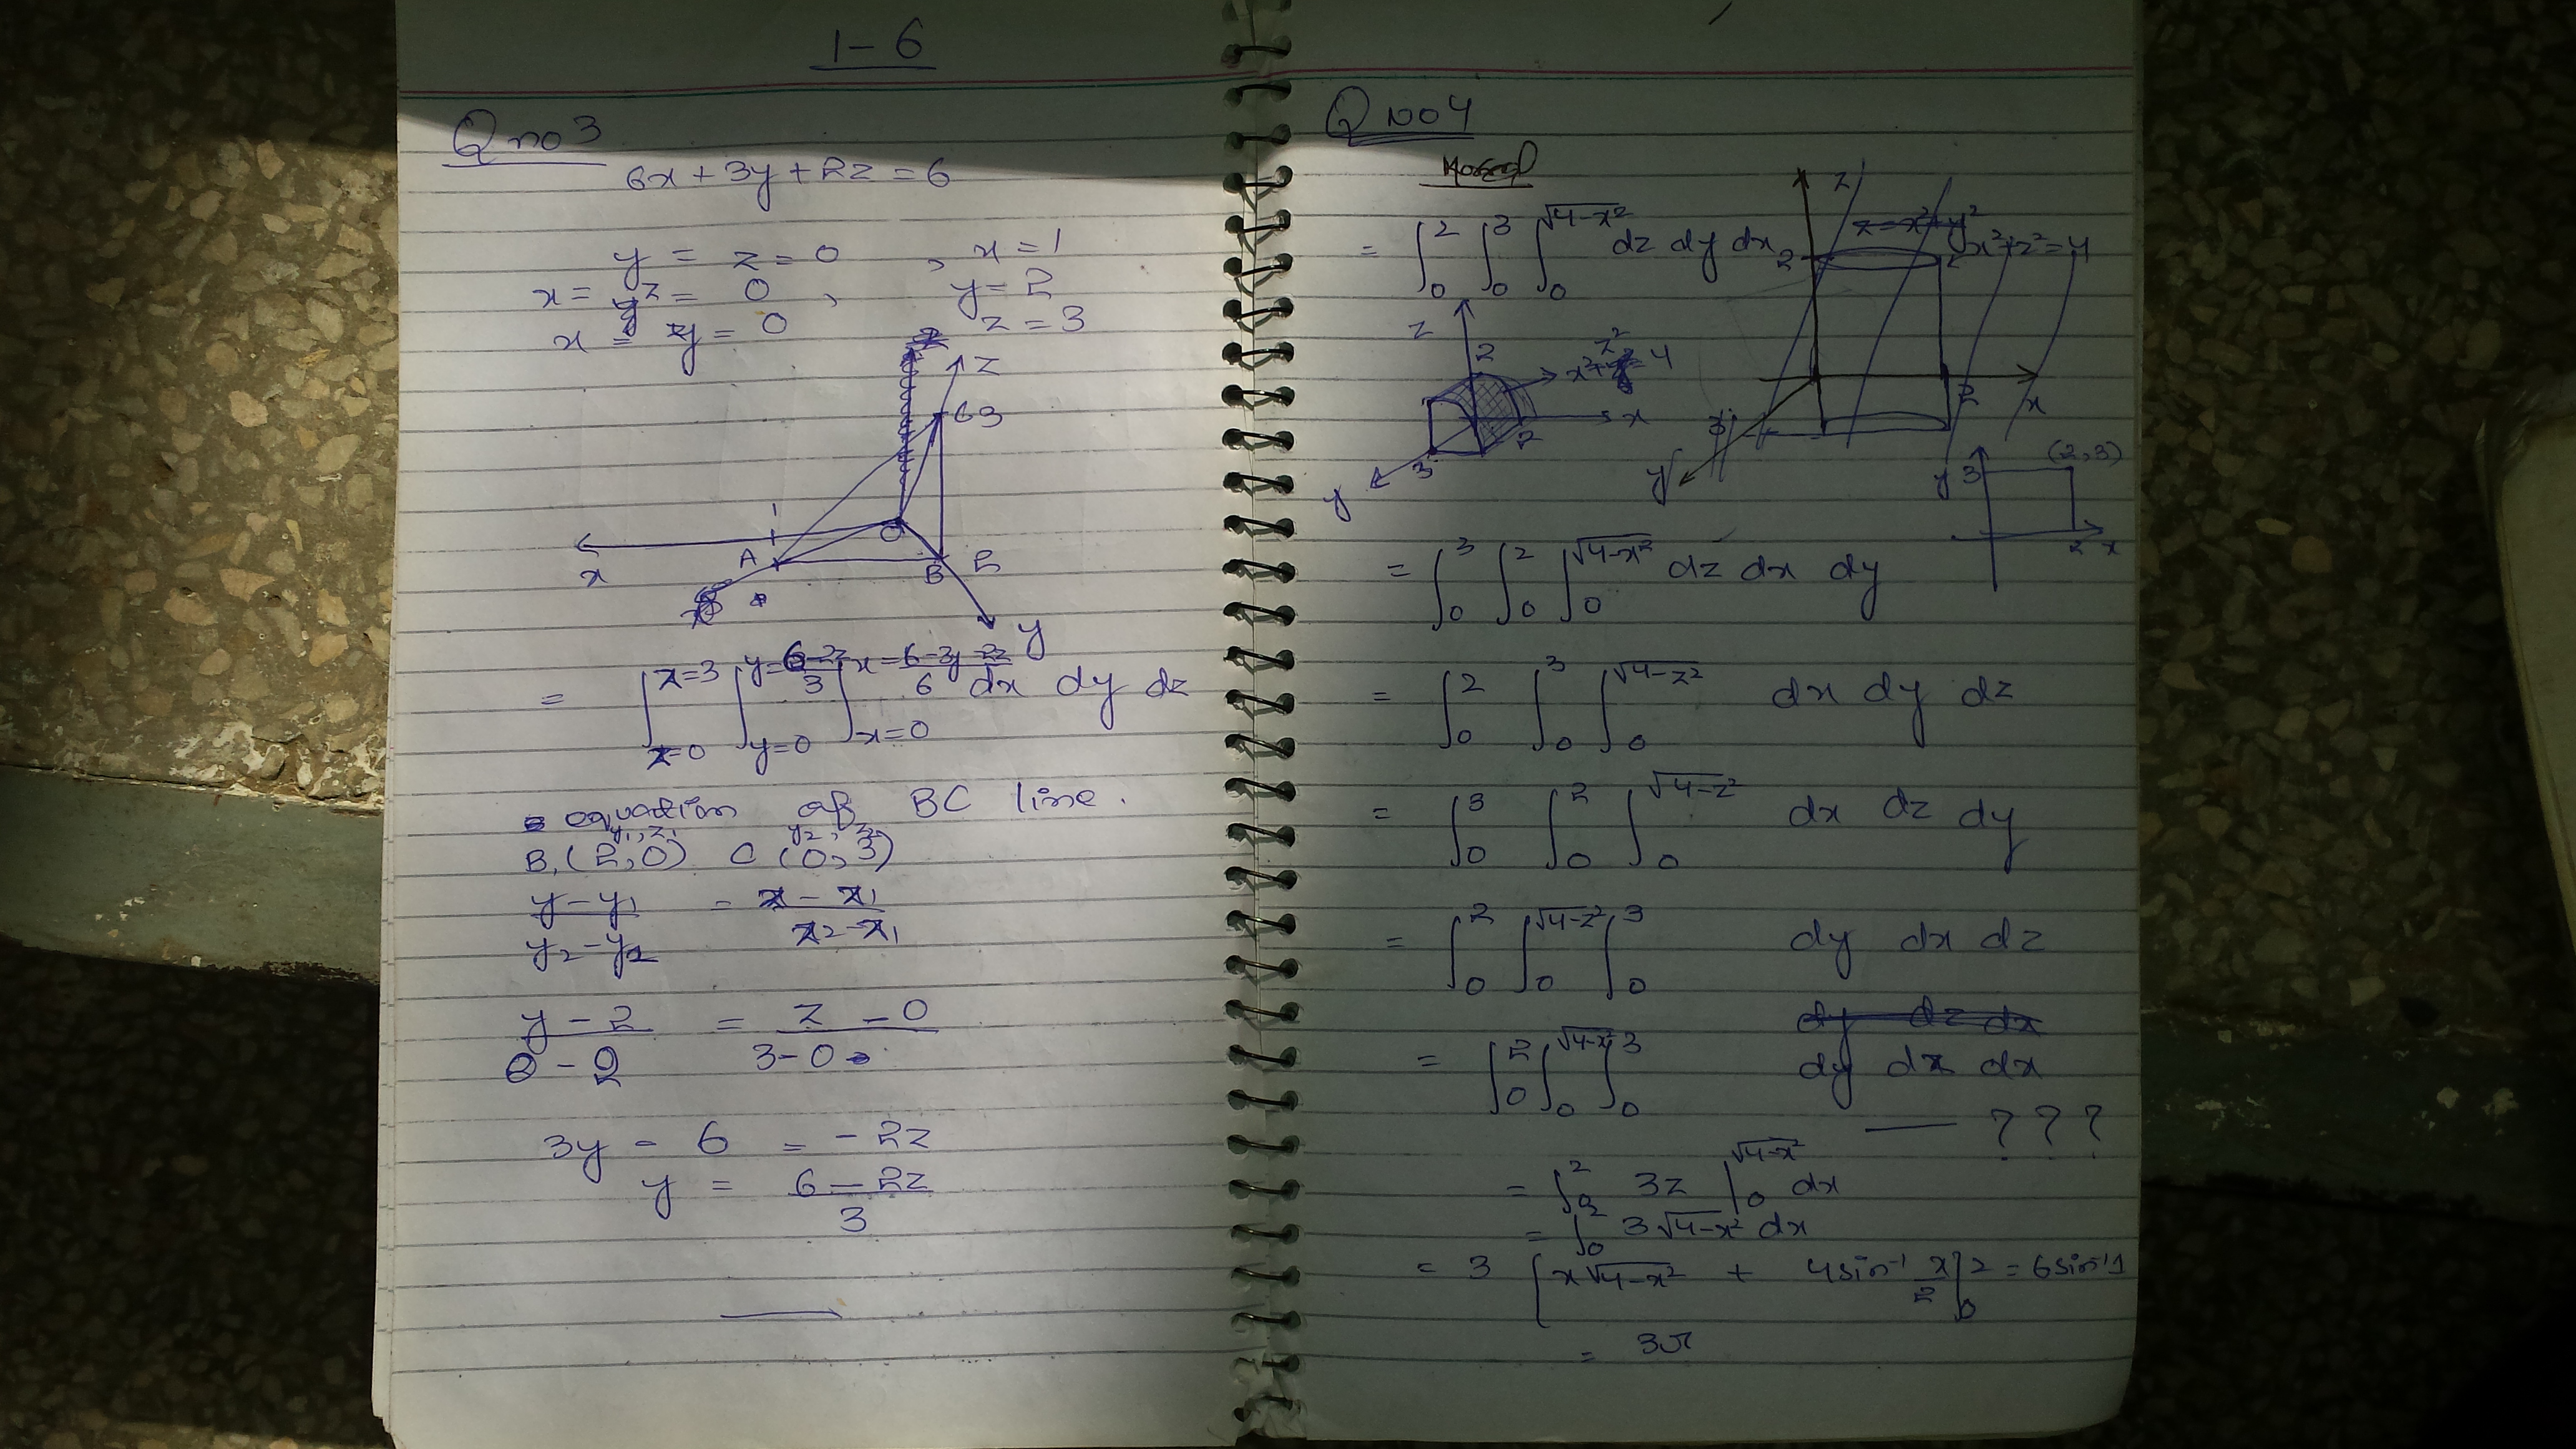 1-6
Q no 3
6x + 3y + 2z = 6
y = z = 0 , x = 1
x = z = 0 , y = 2
x = y = 0 z = 3
z
63
1
O
x
A
B 2
y
= ∫_{z=0}^{z=3} ∫_{y=0}^{y=(6-2z)/3} ∫_{x=0}^{x=(6-3y-2z)/6} dx dy dz
equation of BC line.
y₁, z₁ y₂, z₂
B, (2,0) C (0,3)
(y-y₁)/(y₂-y₁) = (z-z₁)/(z₂-z₁)
(y-2)/(0-2) = (z-0)/(3-0)
3y - 6 = -2z
y = (6-2z)/3
Q no 4
= ∫₀² ∫₀³ ∫₀^{√(4-x²)} dz dy dx
z
z = x²+y²
2
x²+z² = 4
2
x
3
y
z
2
x²+z² = 4
x
2
3
y
y
3
(2,3)
2 x
= ∫₀³ ∫₀² ∫₀^{√(4-x²)} dz dx dy
= ∫₀² ∫₀³ ∫₀^{√(4-z²)} dx dy dz
= ∫₀³ ∫₀² ∫₀^{√(4-z²)} dx dz dy
= ∫₀² ∫₀^{√(4-z²)} ∫₀³ dy dx dz
dy dz dx
= ∫₀² ∫₀^{√(4-x²)} ∫₀³ dy dz dx
— ? ? ?
= ∫₀² 3z |₀^{√(4-x²)} dx
= ∫₀² 3√(4-x²) dx
= 3 [x√(4-x²) + 4sin⁻¹ x/2]₀² = 6sin⁻¹1
= 3π